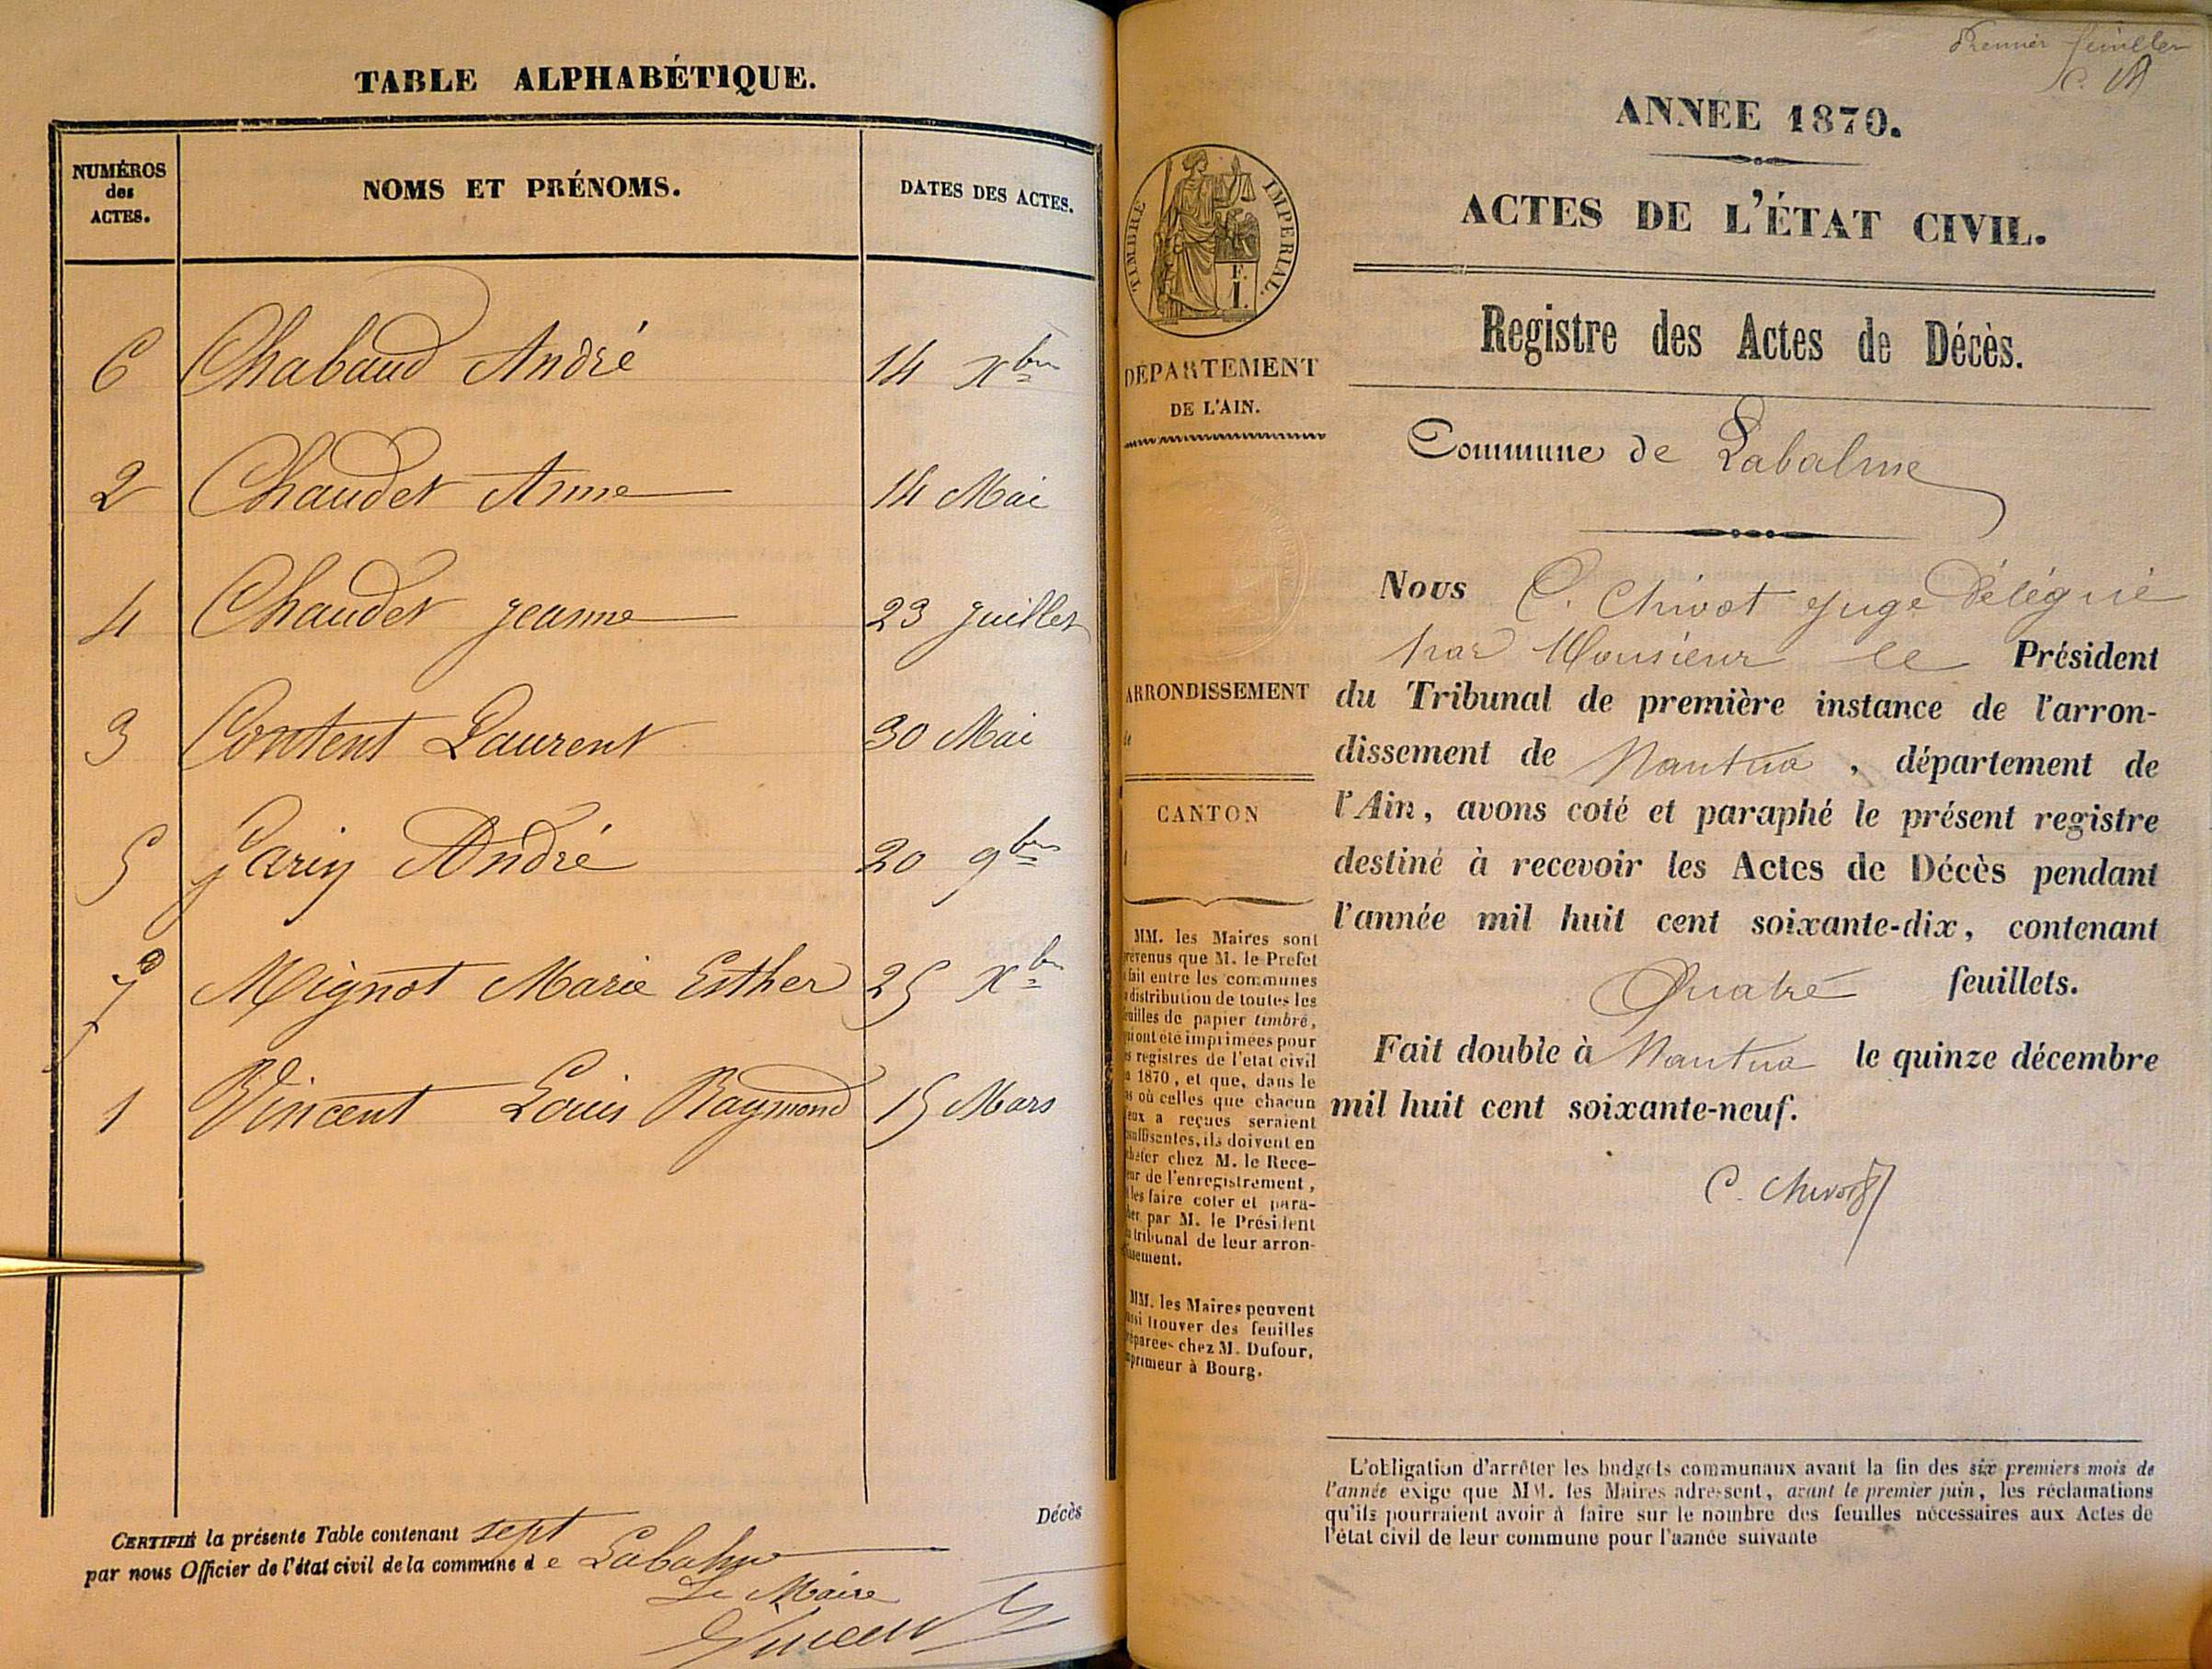 TABLE ALPHABÉTIQUE.
NUMÉROS
des
ACTES.
NOMS ET PRÉNOMS.
DATES DES ACTES.
6 Chabaud André 14 Xbre
2 Chaudet Anne 14 Mai
4 Chaudet Jeanne 23 Juillet
3 Content Laurent 30 Mai
5 Jarin André 20 9bre
7 Mignot Marie Esther 25 Xbre
1 Vincent Louis Raymond 15 Mars
Décès
CERTIFIÉ la présente Table contenant sept
par nous Officier de l'état civil de la commune de Labalme
Le Maire
Vincent
Premier feuillet
ANNÉE 1870.
ACTES DE L'ÉTAT CIVIL.
Registre des Actes de Décès.
Commune de Labalme
Nous C. Chivot Juge Délégué
par Monsieur le Président
du Tribunal de première instance de l'arron-
dissement de Nantua, département de
l'Ain, avons coté et paraphé le présent registre
destiné à recevoir les Actes de Décès pendant
l'année mil huit cent soixante-dix, contenant
Quatre feuillets.
Fait double à Nantua le quinze décembre
mil huit cent soixante-neuf.
C. Chivot
TIMBRE IMPERIAL.
F.
I.
DÉPARTEMENT
DE L'AIN.
ARRONDISSEMENT
CANTON
MM. les Maires sont
prévenus que M. le Prefet
fait entre les communes
distribution de toutes les
feuilles de papier timbré,
qui ont été imprimées pour
registres de l'etat civil
1870, et que, dans le
cas où celles que chacun
d'eux a reçues seraient
insuffisantes, ils doivent en
acheter chez M. le Rece-
veur de l'enregistrement,
les faire coter et para-
pher par M. le Président
tribunal de leur arron-
dissement.
MM. les Maires peuvent
aussi trouver des feuilles
préparees chez M. Dufour,
imprimeur à Bourg.
L'obligation d'arrêter les budgets communaux avant la fin des six premiers mois de
l'année exige que MM. les Maires adressent, avant le premier juin, les réclamations
qu'ils pourraient avoir à faire sur le nombre des feuilles nécessaires aux Actes de
l'état civil de leur commune pour l'année suivante